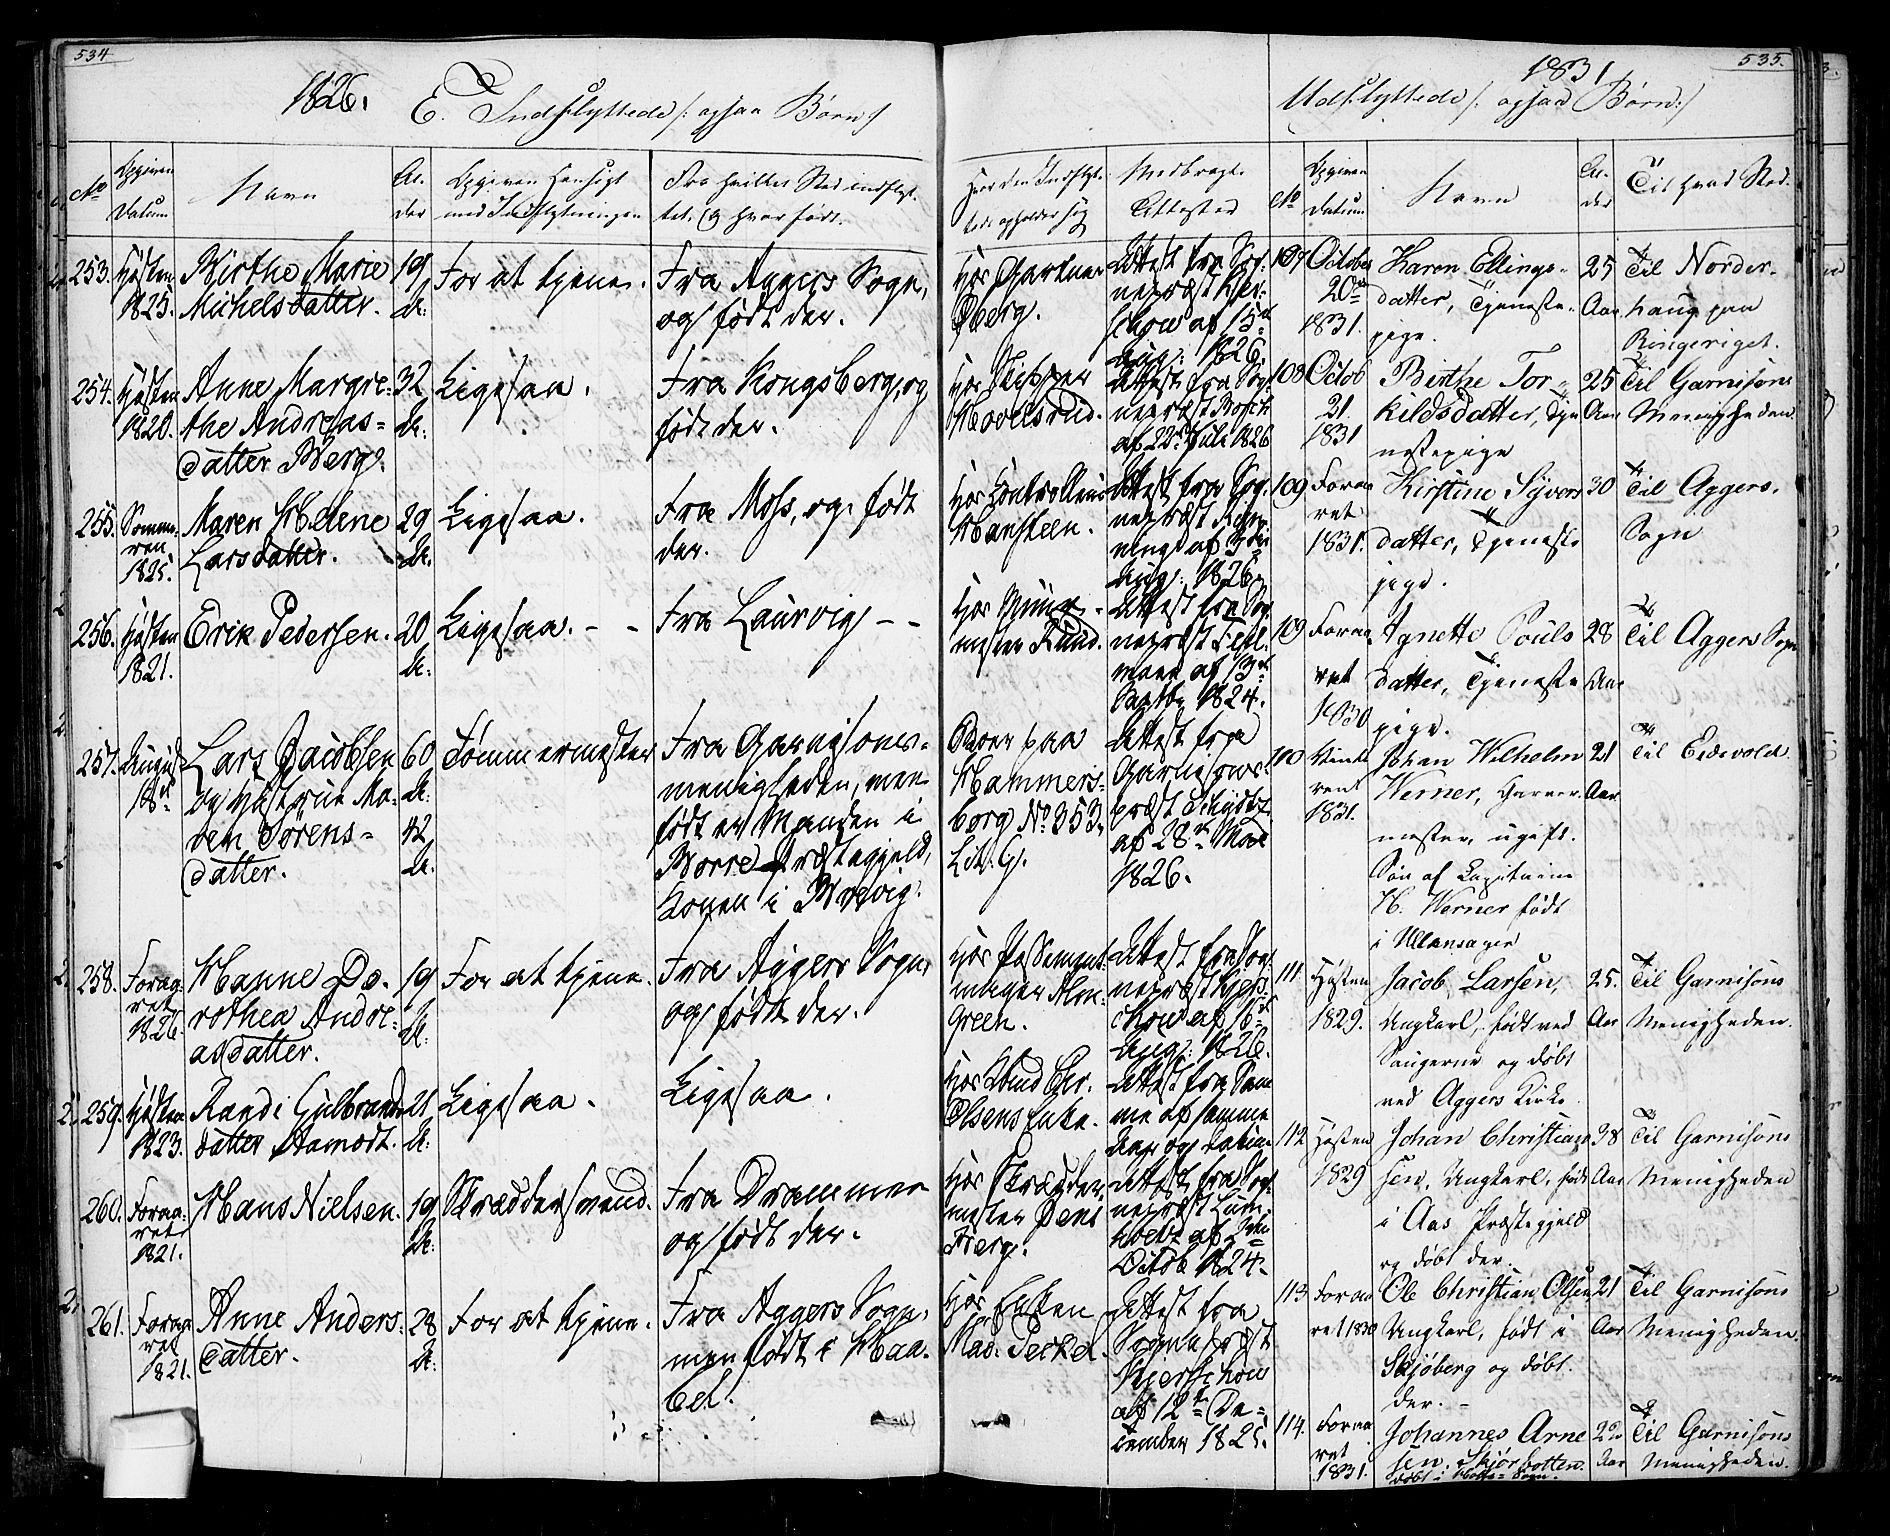 534
1826.
E. Indflyttede /: ogsaa Børn :/
No
Opgiven Datum
Navn
Al-
der
Opgiven Hensigt
med Indflytningen
Fra hvilket Sted indflyt-
tet, og hvor født.
Hvor den Indflyt-
tede opholder sig
Medbragte
Attester
253. Høsten 1825.
Birthe Marie
Michelsdatter.
19 A:
For at tjene.
Fra Aggers Sogn,
og født der.
Hos Gartner
Berg.
Attest fra Sog-
nepræst
af 15de
Aug: 1826.
254. Høsten 1820.
Anne Margre-
the Andreas-
datter Berg.
32 A:
Ligesaa.
Fra Kongsberg, og
født der.
Hos Skipper
Hovelsrud.
Attest fra Sog-
nepræst
af 22de Juli 1826
255. Somme-
ren
1825.
Maren Helene
Larsdatter.
29 A:
Ligesaa.
Fra Moss, og født
der.
Hos
Hansteen.
Attest fra Sog-
nepræst
af 3die
Aug: 1826.
256. Høsten 1821.
Erik Pedersen.
20 A:
Ligesaa. - -
Fra Laurvig - -
Hos
mester Rund.
Attest fra Sog-
nepræst
af 13de
Septbr 1824.
257. August 18de
Lars Jacobsen
og Hustrue Ma-
ren Sørens-
datter.
60 A:
42 A.
Tømmermester
Fra Garnisons-
menigheden, men
født er Manden i
Borre Præstegjeld,
Konen i Brevig.
Boer paa
Hammers-
borg No 353.
Lit. G.
Attest fra
Garnisons-
præst Schydtz
af 28de Mai
1826.
258. Foraa-
ret
1826.
Hanne Do-
rothea Andre-
asdatter.
19 A:
For at tjene.
Fra Aggers Sogn,
og født der.
Hos Passement-
mager
Green.
Attest fra Sog-
nepræst
af 16de
Aug: 1826.
259. Høsten 1823.
Randi Gulbrands-
datter Aamodt.
21 A:
Ligesaa.
Ligesaa.
Hos
Olsens Enke.
Attest fra Sam-
me af samme
Aar og Datum
260. Foraa-
ret
1821.
Hans Nielsen.
19 A:
Skræddersvend.
Fra Drammen
og født der.
Hos Skrædder-
mester Jens
Berg.
Attest fra Sog-
nepræst Lum-
holtz af 2den
Octob 1824.
261. Foraa-
ret
1821.
Anne Anders-
datter.
28 A:
For at tjene.
Fra Aggers Sogn,
men født i Haa-
bel.
Hos Enken
Mad. Jerkel.
Attest fra
Sognepræst
Kjerschow
af 12te De-
cember 1825.
1831
535.
Udflyttede /: ogsaa Børn :/
No
Opgiven Datum
Navn
Al-
der
Til hvad Sted.
107 October 20de 1831.
Karen Ellings-
datter, Tjeneste-
pige.
25 Aar
Til Norder-
houg paa
Ringeriget.
108 Octob 21. 1831
Birthe Tor-
kildsdatter, Tje-
nestepige
25 Aar
Til Garnisons
Menigheden
109 Foraa-
ret
1831.
Kirstine Syvers-
datter, Tjeneste
pige.
30
Til Aggers
Sogn
109 Foraa-
ret
1830
Agnette Pouls
datter, Tjeneste
pige.
28 Aar
Til Aggers Sogn
110 Vinte-
ren
1831.
Johan Wilhelm
Werner, Garver-
mester, ugift.
Søn af Capitaine
H. Werner født
i Ullensager
21 Aar
Til Eidsvold.
111. Høsten 1829.
Jacob Larsen,
Ungkarl, født ved
Saugerne og døbt
ved Aggers Kirke.
25. Aar
Til Garnisons
Menigheden.
112 Høsten 1829
Johan Christian-
sen, Ungkarl, født
i Aas Præstegjeld
og døbt der.
38 Aar
Til Garnisons
Menigheden
113 Foraa-
ret 1830
Ole Christian Olsen,
Ungkarl, født i
Skjøberg og døbt
der.
21 Aar
Til Garnisons
Menigheden.
114. Foraa-
ret
1831.
Johannes Arne-
sen. Skjørbotten.
døbt i Sogn.
Aar
Til Garnisons
Menigheden.